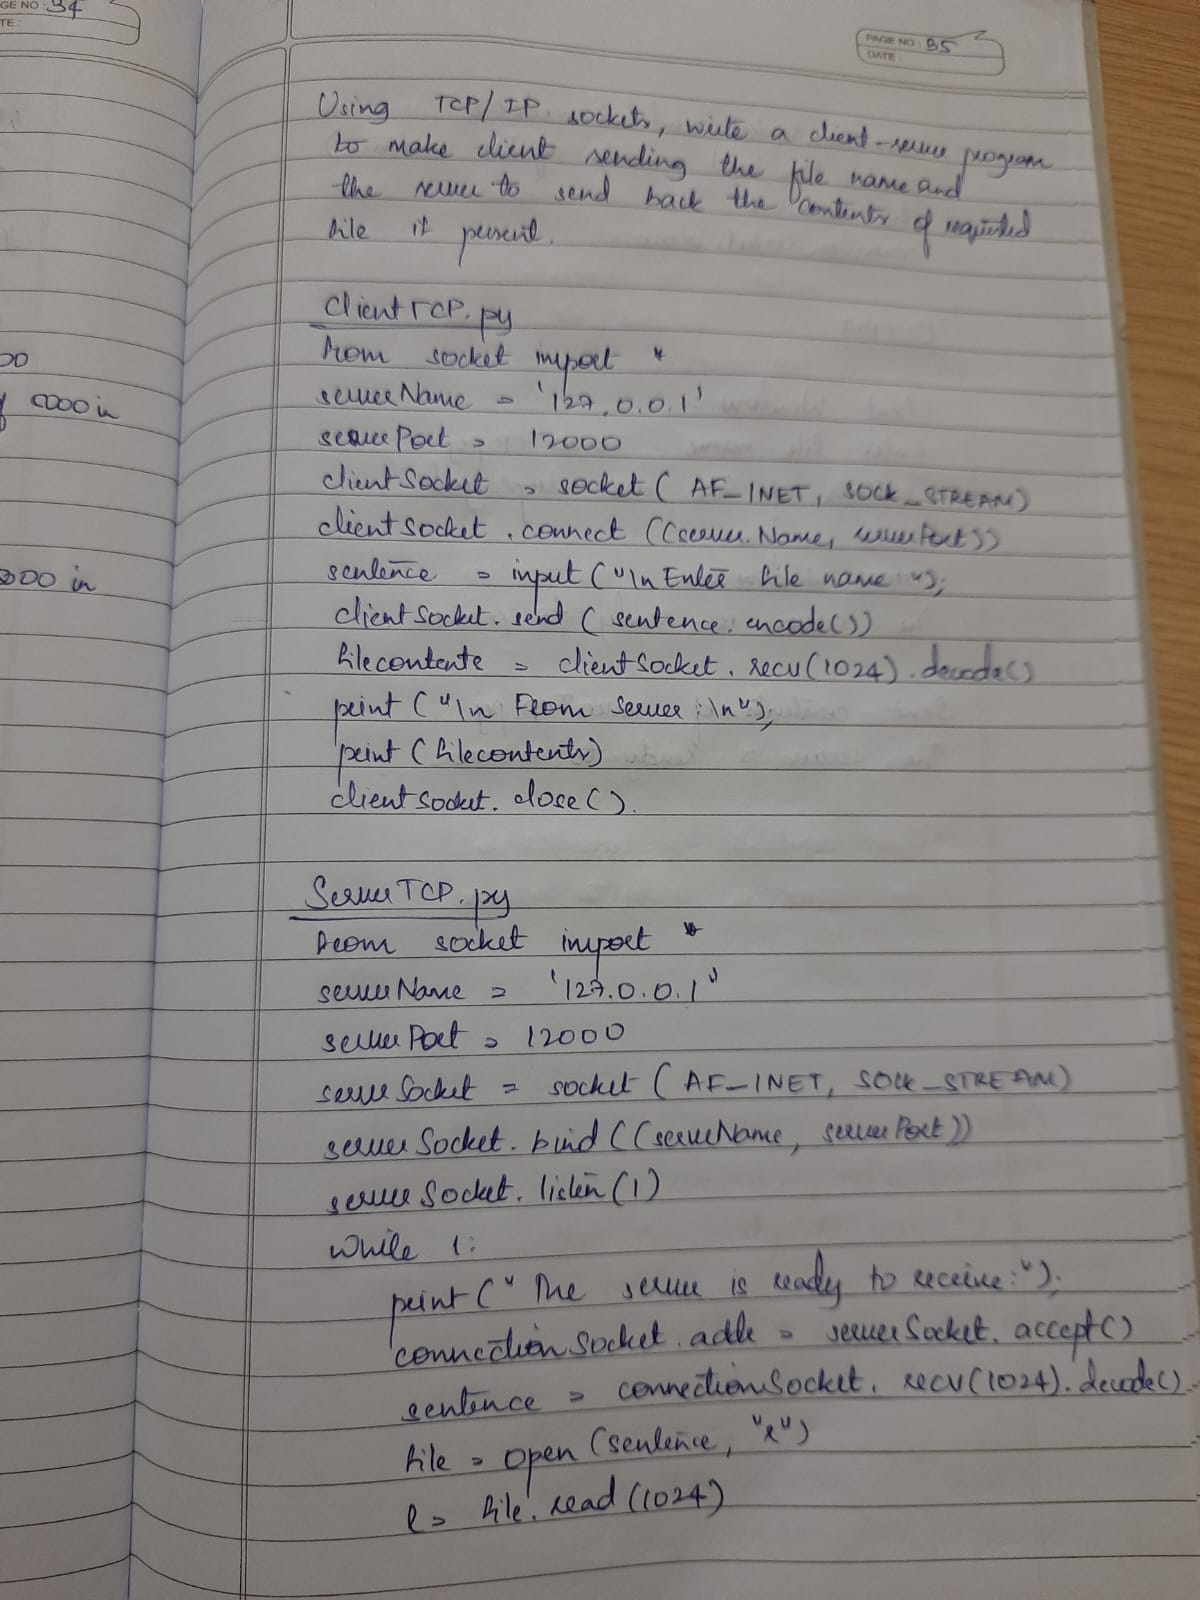 GE NO: 34
TE:
00
0000 in
000 in
PAGE NO: 35
DATE:
Using TCP/IP sockets, write a client-server program
to make client sending the file name and
the server to send back the contents of requested
file if present.
ClientTCP.py
from socket import *
serverName = '127.0.0.1'
serverPort = 12000
clientSocket = socket ( AF_INET, SOCK_STREAM)
clientSocket.connect ((serverName, serverPort))
sentence = input ("\nEnter file name: ");
clientSocket.send ( sentence.encode())
filecontents = clientSocket.recv(1024).decode()
print ("\n From Server:\n");
print (filecontents)
clientSocket.close().
ServerTCP.py
from socket import *
serverName = '127.0.0.1'
serverPort = 12000
serverSocket = socket ( AF_INET, SOCK_STREAM)
serverSocket.bind((serverName, serverPort))
serverSocket.listen(1)
while 1:
print (" The server is ready to receive:");
connectionSocket, addr = serverSocket.accept()
sentence = connectionSocket.recv(1024).decode()
file = open (sentence, "r")
l = file.read (1024)